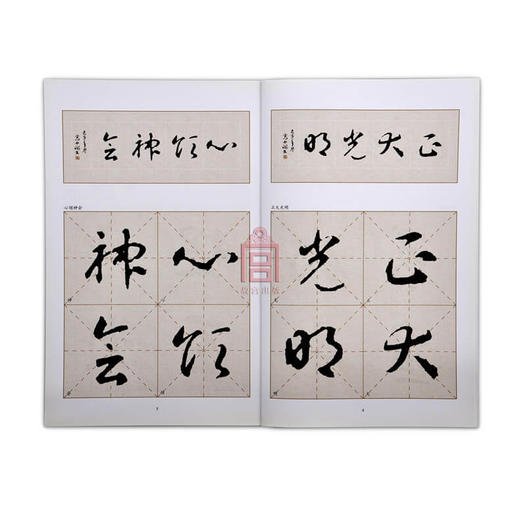 正大光明
正大光明
正大
光明
心领神会
心领神会
心领
神会
7
故宫出版